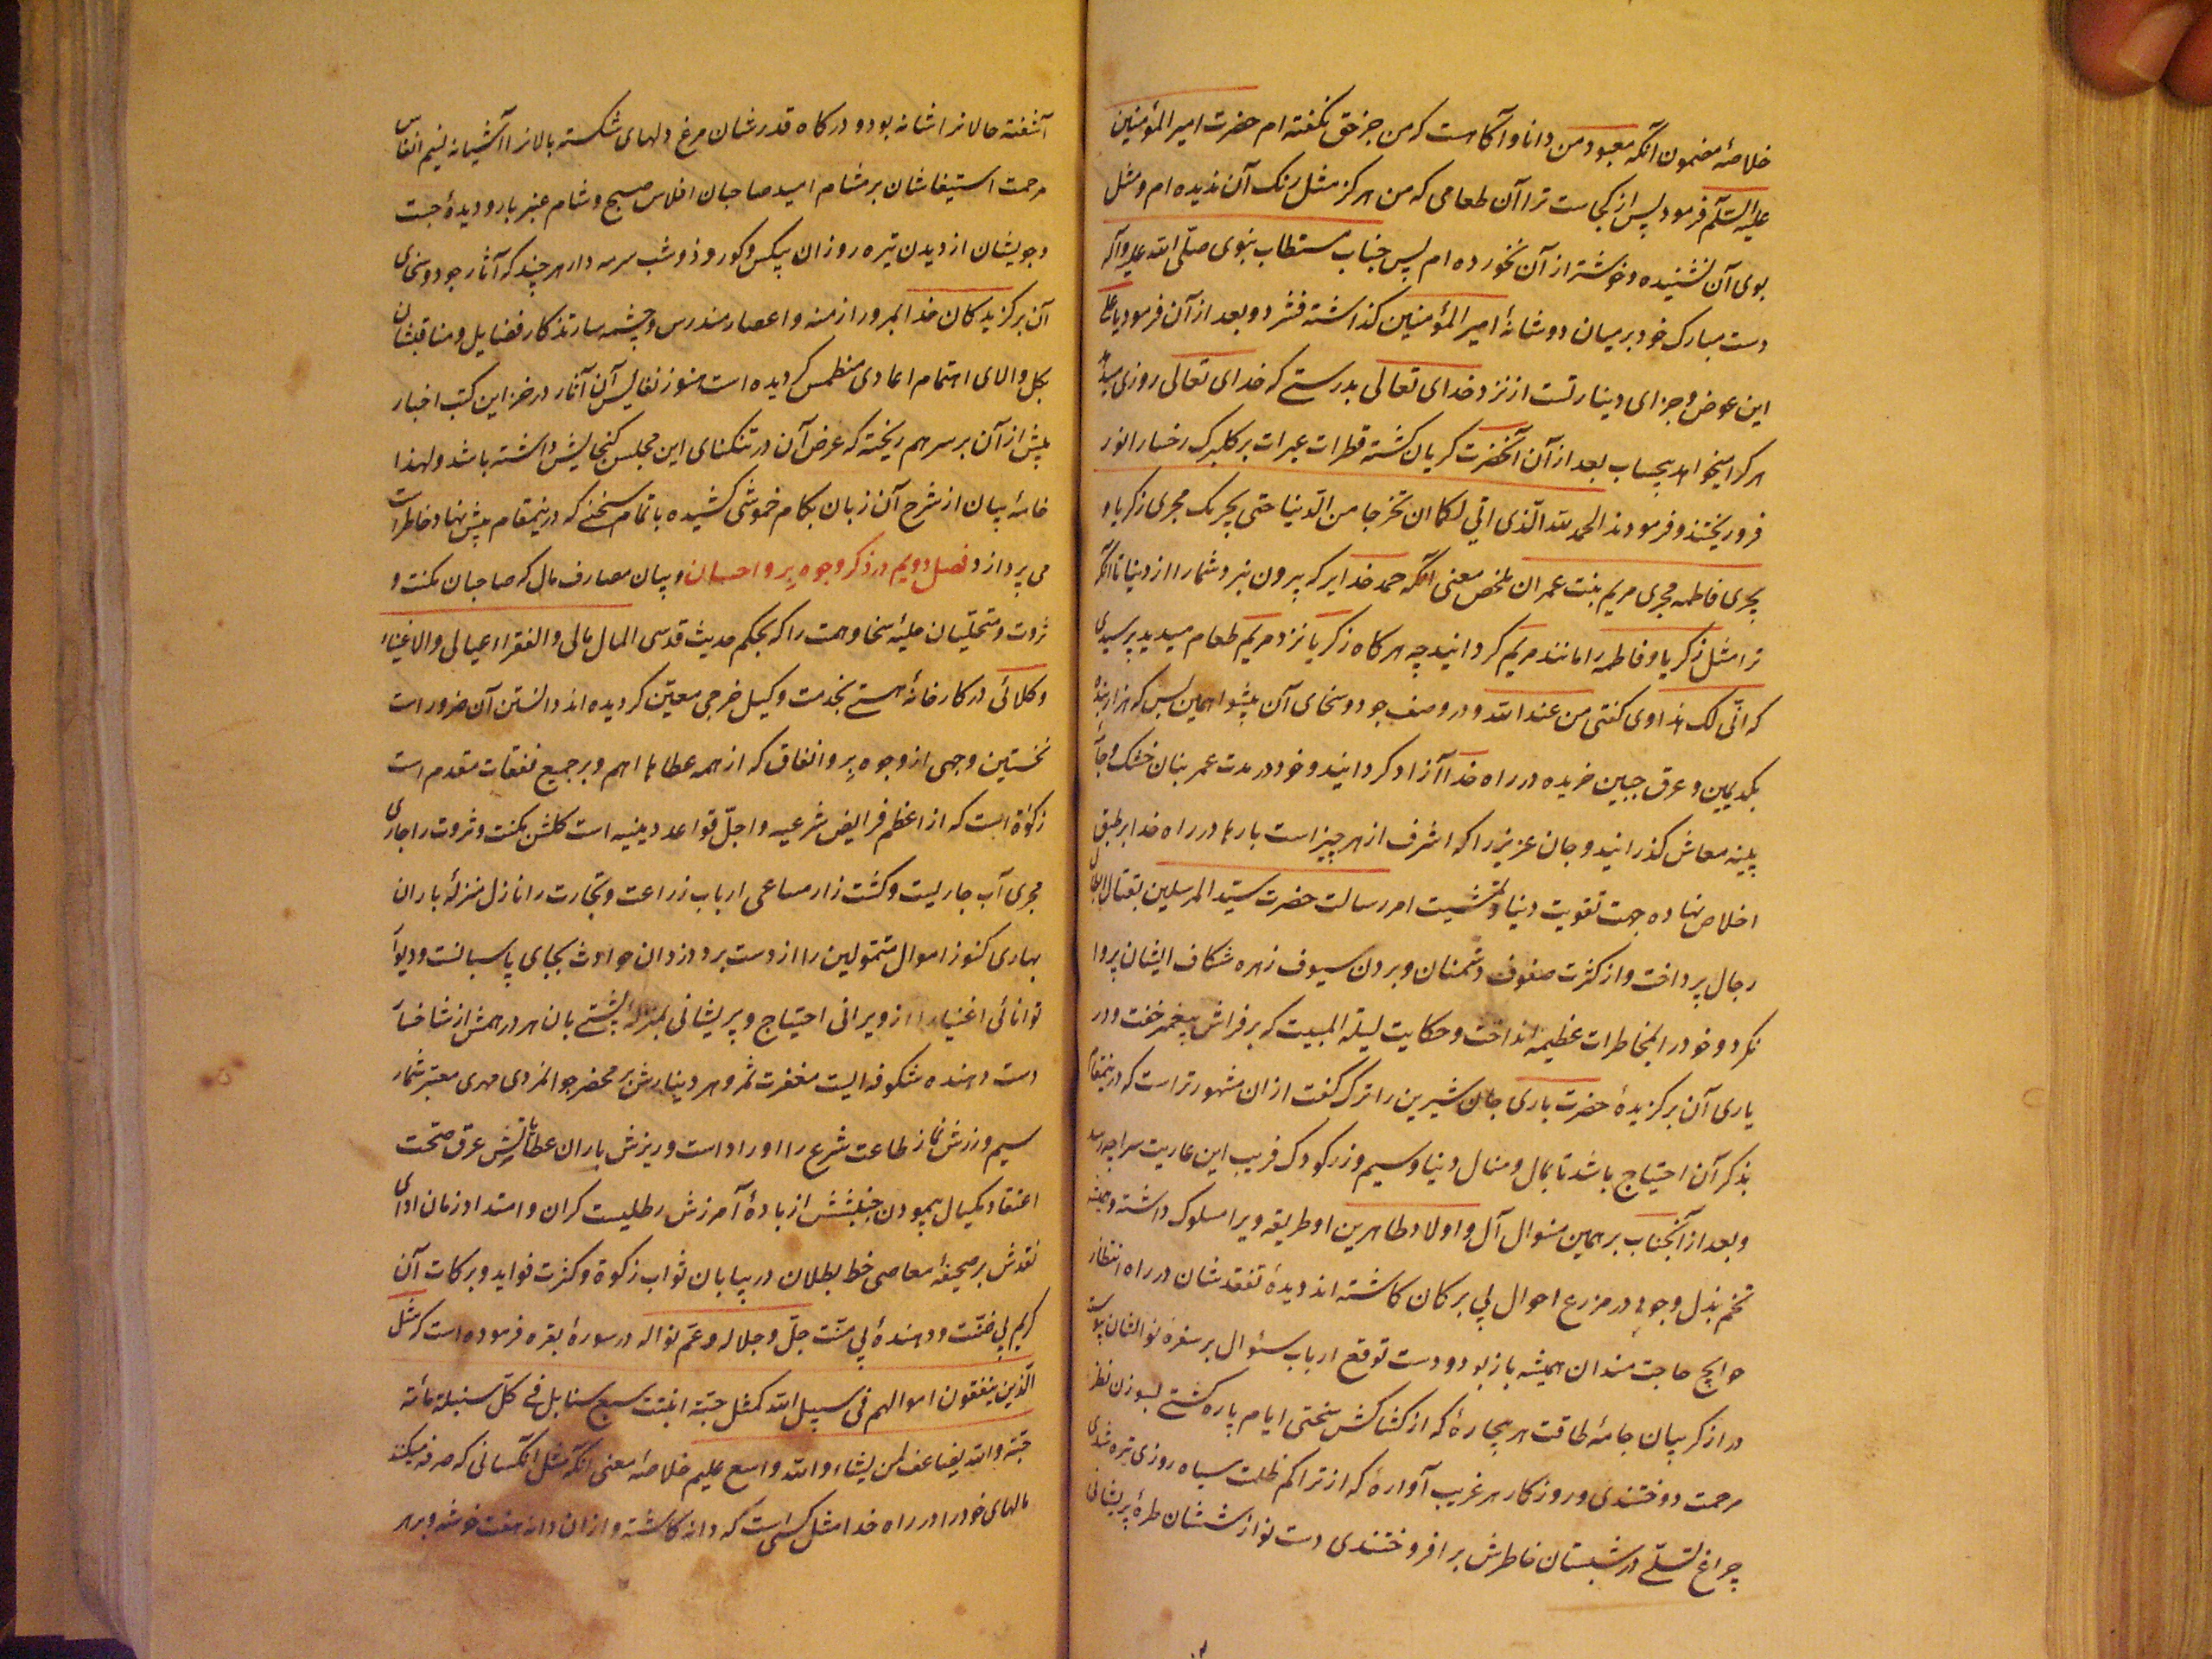 خلاصهٔ مضمون آنکه معبود من دانا و آگاهست که من جز حق نگفته ام حضرت امیر المؤمنین
علیه السّلام فرمود پس از کجاست ترا آن طعامی که من هرگز مثل رنگ آن ندیده ام و مثل
بوی آن نشنیده و خوشتر از آن نخورده ام پس جناب مستطاب نبوی صلّی الله علیه و آله
دست مبارک خود بر میان دو شانهٔ امیر المؤمنین گذاشته فشرد و بعد از آن فرمود یا علی
این عوض و جزای دینار تست از نزد خدای تعالی بدرستی که خدای تعالی روزی میدهد
هر کرا میخواهد بیحساب بعد از آن آنحضرت گریان گشته قطرات عبرات بر گلبرک رخسار انور
فرو ریختند و فرمودند الحمد لله الّذی ابی لکما ان تخرجا من الدّنیا حتی یجریک مجری زکریا و
یجری فاطمه مجری مریم بنت عمران ملخص معنی آنکه حمد خدایرا که بیرون نبرد شما را از دنیا تا آنکه
ترا مثل زکریا و فاطمه را مانند مریم گردانید چه هر گاه زکریا نزد مریم طعام میدید پرسیدی
که انّی لک هذا وی گفتی من عند الله و در وصف جود و سخای آن پیشوا همین بس که هزار بنده
بکد یمین و عرق جبین خریده در راه خدا آزاد گردانید و خود در مدت عمر بنان خشک و جامه
پلینه معاش گذرانید و جان عزیز را که اشرف از هر چیز است بارها در راه خدا بر طبق
اخلاص نهاده جهت تقویت دنیا و تمشیت امر رسالت حضرت سیّد المرسلین بقتال ابطال
رجال پرداخت و از کثرت صفوف دشمنان و بردن سیوف زهره شکاف ایشان پروا
نکرد و خود را بمخاطرات عظیمه انداخت و حکایت لیلة المبیت که بر فراش پیغمبر خفت و در
یاری آن برگزیدهٔ حضرت باری جان شیرین را ترک گفت از ان مشهورتر است که درینمقام
بذکر آن احتیاج باشد تا بمال و منال دنیا و سیم و زر کودک فریب این عاریت سرا چه رسد
و بعد از آنجناب بر همین منوال آل و اولاد طاهرین او طریقه ویرا مسلوک داشته و همیشه
تخم بذل وجود در مزرع احوال بی برگان کاشته اند دیدهٔ تفقد شان در راه انتظار
حوایج حاجت مندان همیشه باز بود و دست توقع ارباب سئوال بر سفره نوالشان پیوسته
دراز گریبان جامهٔ طاقت هر بیچارهٔ که از کشاکش سختی ایام پاره گشتی بسوزن نظر
مرحمت دوختندی و روزکار هر غریب آوارهٔ که از تراکم ظلمت سیاه روزی تیره شدی
چراغ تسلّی در شبستان خاطرش بر افروختندی دست نوازششان طرهٔ پریشانی
آشفته حالانرا شانه بود و درگاه قدرشان مرغ دلهای شکسته بالانرا آشیانه نسیم انفاس
مرحمت استیفاشان بر مشام امید صاحبان افلاس صبح و شام عنبر بار و دیدهٔ جست
و جویشان از دیدن تیره روزان بیکس و کور روز و شب سرمه دار هر چند که آثار جود و سخای
آن برگزیدگان خدا بمرور ازمنه و اعصار مندرس و چشمه سار تذکار فضایل و مناقبشان
بکل و الای اهتمام اعادی منطمس گردیده است هنوز نفایس آن آثار در خزاین کتب اخبار
پیش از آن بر سر هم ریخته که عرض آن در تنگنای این مجلس گنجایش داشته باشد و لهذا
خامهٔ بیان از شرح آن زبان بکام خموشی کشیده باتمام سخنی که درینمقام پیش نهاد خاطر است
می پردازد فصل دویم در ذکر وجوه بِر و احسان و بیان مصارف مال که صاحبان مکنت و
ثروت و متحلّیان حلیهٔ سخا و همت را که بحکم حدیث قدسی المال مالی و الفقراء عیالی و الاغنیاء
وکلائی در کارخانهٔ هستی بخدمت وکیل خرجی معیّن گردیده اند دانستن آن ضرور است
نخستین وجهی از وجوه بِر و انفاق که از همه عطاها اهم و بر جمیع نفقات مقدم است
زکوٰة است که از اعظم فرایض شرعیه و اجلّ قواعد دینیه است گلشن مکنت و ثروت را جاری
مجری آب جاریست و کشت زار مساعی ارباب زراعت و تجارت را نازل منزلهٔ باران
بهاری کنوز اموال متمولین را از دست برد دزدان حوادث بجای پاسبانست و دیوار
توانائی اغنیا را از ویرانی احتیاج و پریشانی بمنزلهٔ پشتی بان هر درهمش از شاخسار
دست دهنده شکوفه ایست مغفرت ثمر و هر دینارش بر محضر جوانمردی مهری معتبر شمار
سیم و زرش نماز طاعت شرع را اوراد است و ریزش باران عطایش عرق صحت
اعتقاد بکیال پیمودن جنسش از بادهٔ آمرزش رطلیست گران و امتداد زمان ادای
نقدش بر صحیفهٔ معاصی خط بطلان در بیابان ثواب زکوة و کثرت فواید و برکات آن
کریم بی ضنّت و دهندهٔ بی منّت جلّ و جلاله و عمّ نواله در سورهٔ بقره فرموده است که مثل
الّذین ینفقون اموالهم فی سبیل الله کمثل حبّة انبتت سبع سنابل فی کلّ سنبلة مائة
حبّة و الله یضاعف لمن یشاء و الله واسع علیم خلاصهٔ معنی آنکه مثل آنکسانی که صرف میکنند
مالهای خود را در راه خدا مثل کسی است که دانه کاشته و از ان دانه هفت خوشه و بر هر